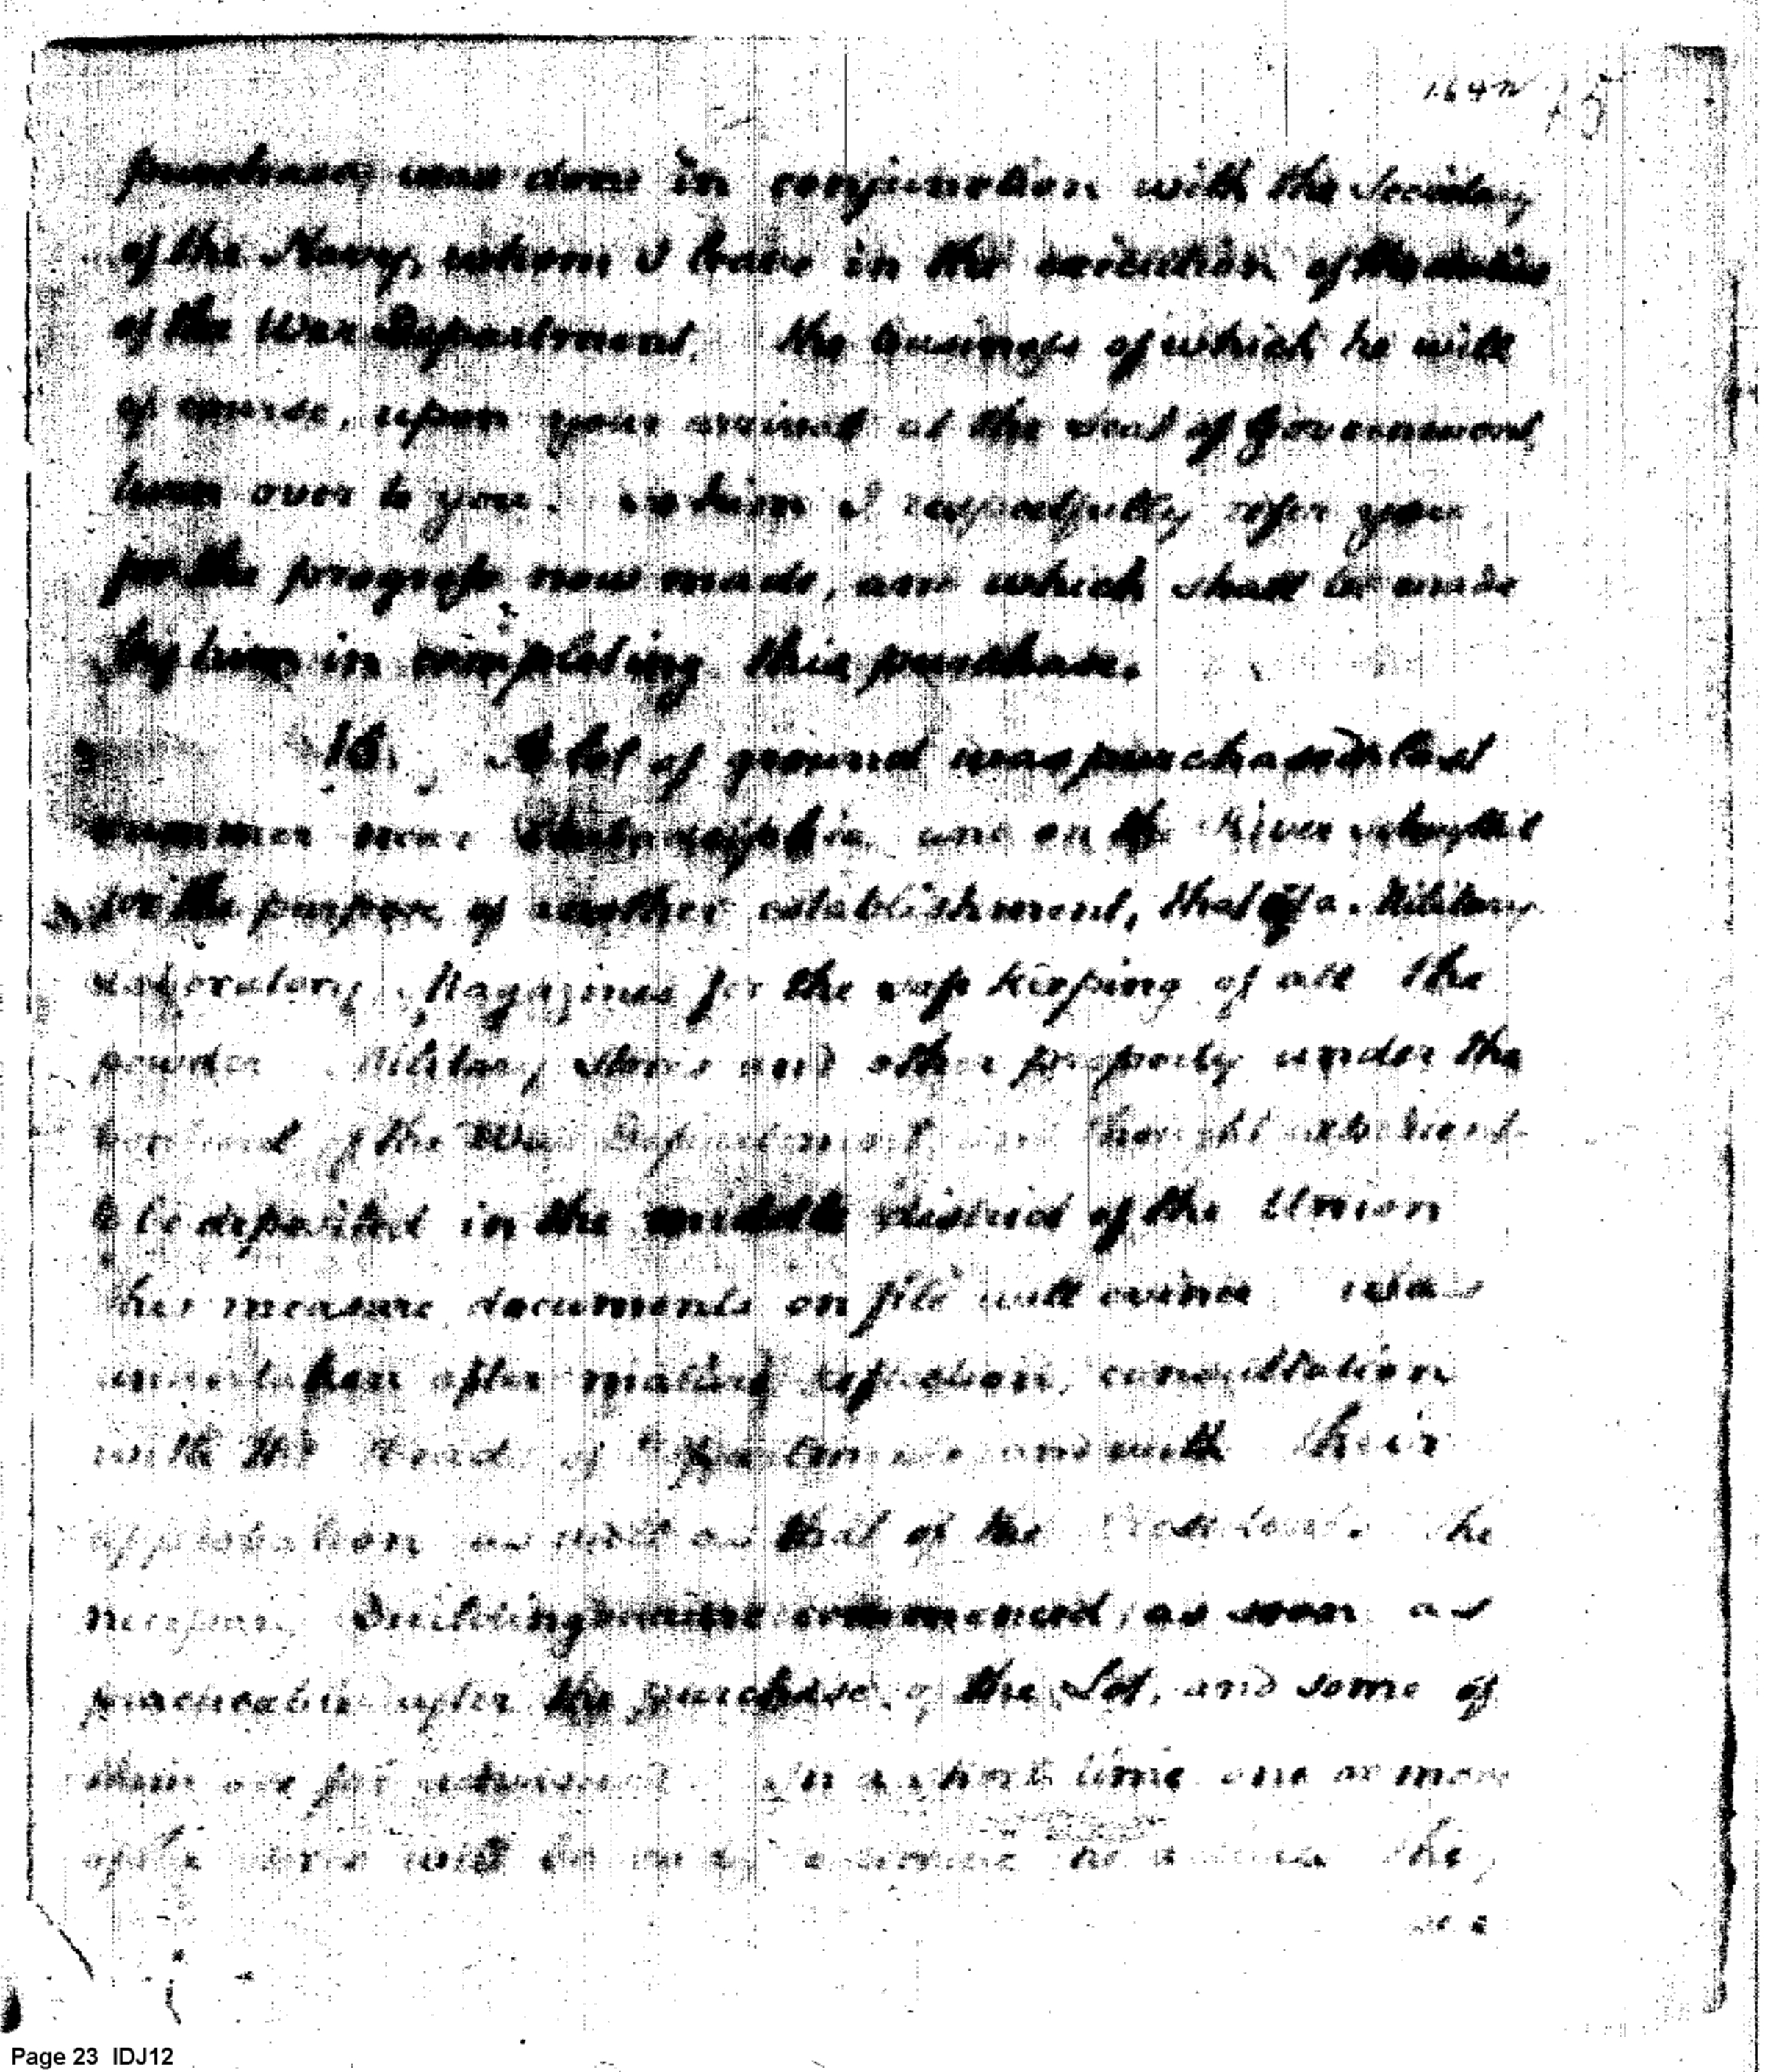 purchase, was done in conjunction with the Secretary
of the Navy, whom I leave in the execution of the duties
of the War Department, the business of which he will
of course, upon your arrival at the seat of Government,
turn over to you. To him I respectfully refer you
for the progress now made, and which shall be made
by him in completing this purchase.
16. A lot of ground was purchased last
summer near Philadelphia and on the River Schuylkill
for the purpose of another establishment, that of a Military
Laboratory, Magazines for the safe keeping of all the
powder Military Stores and other property under the
of the War Department, thought expedient
to be deposited in the middle district of the Union
this measure documents on file will evince was
undertaken after mature reflection, consultation
with the Heads of Departments and with their
approbation as well as that of the President. The
necessary Buildings were commenced, as soon as
practicable after the purchase of the Lot, and some of
them are far advanced. In a short time one or more
of the will be to receive the
Page 23 IDJ12